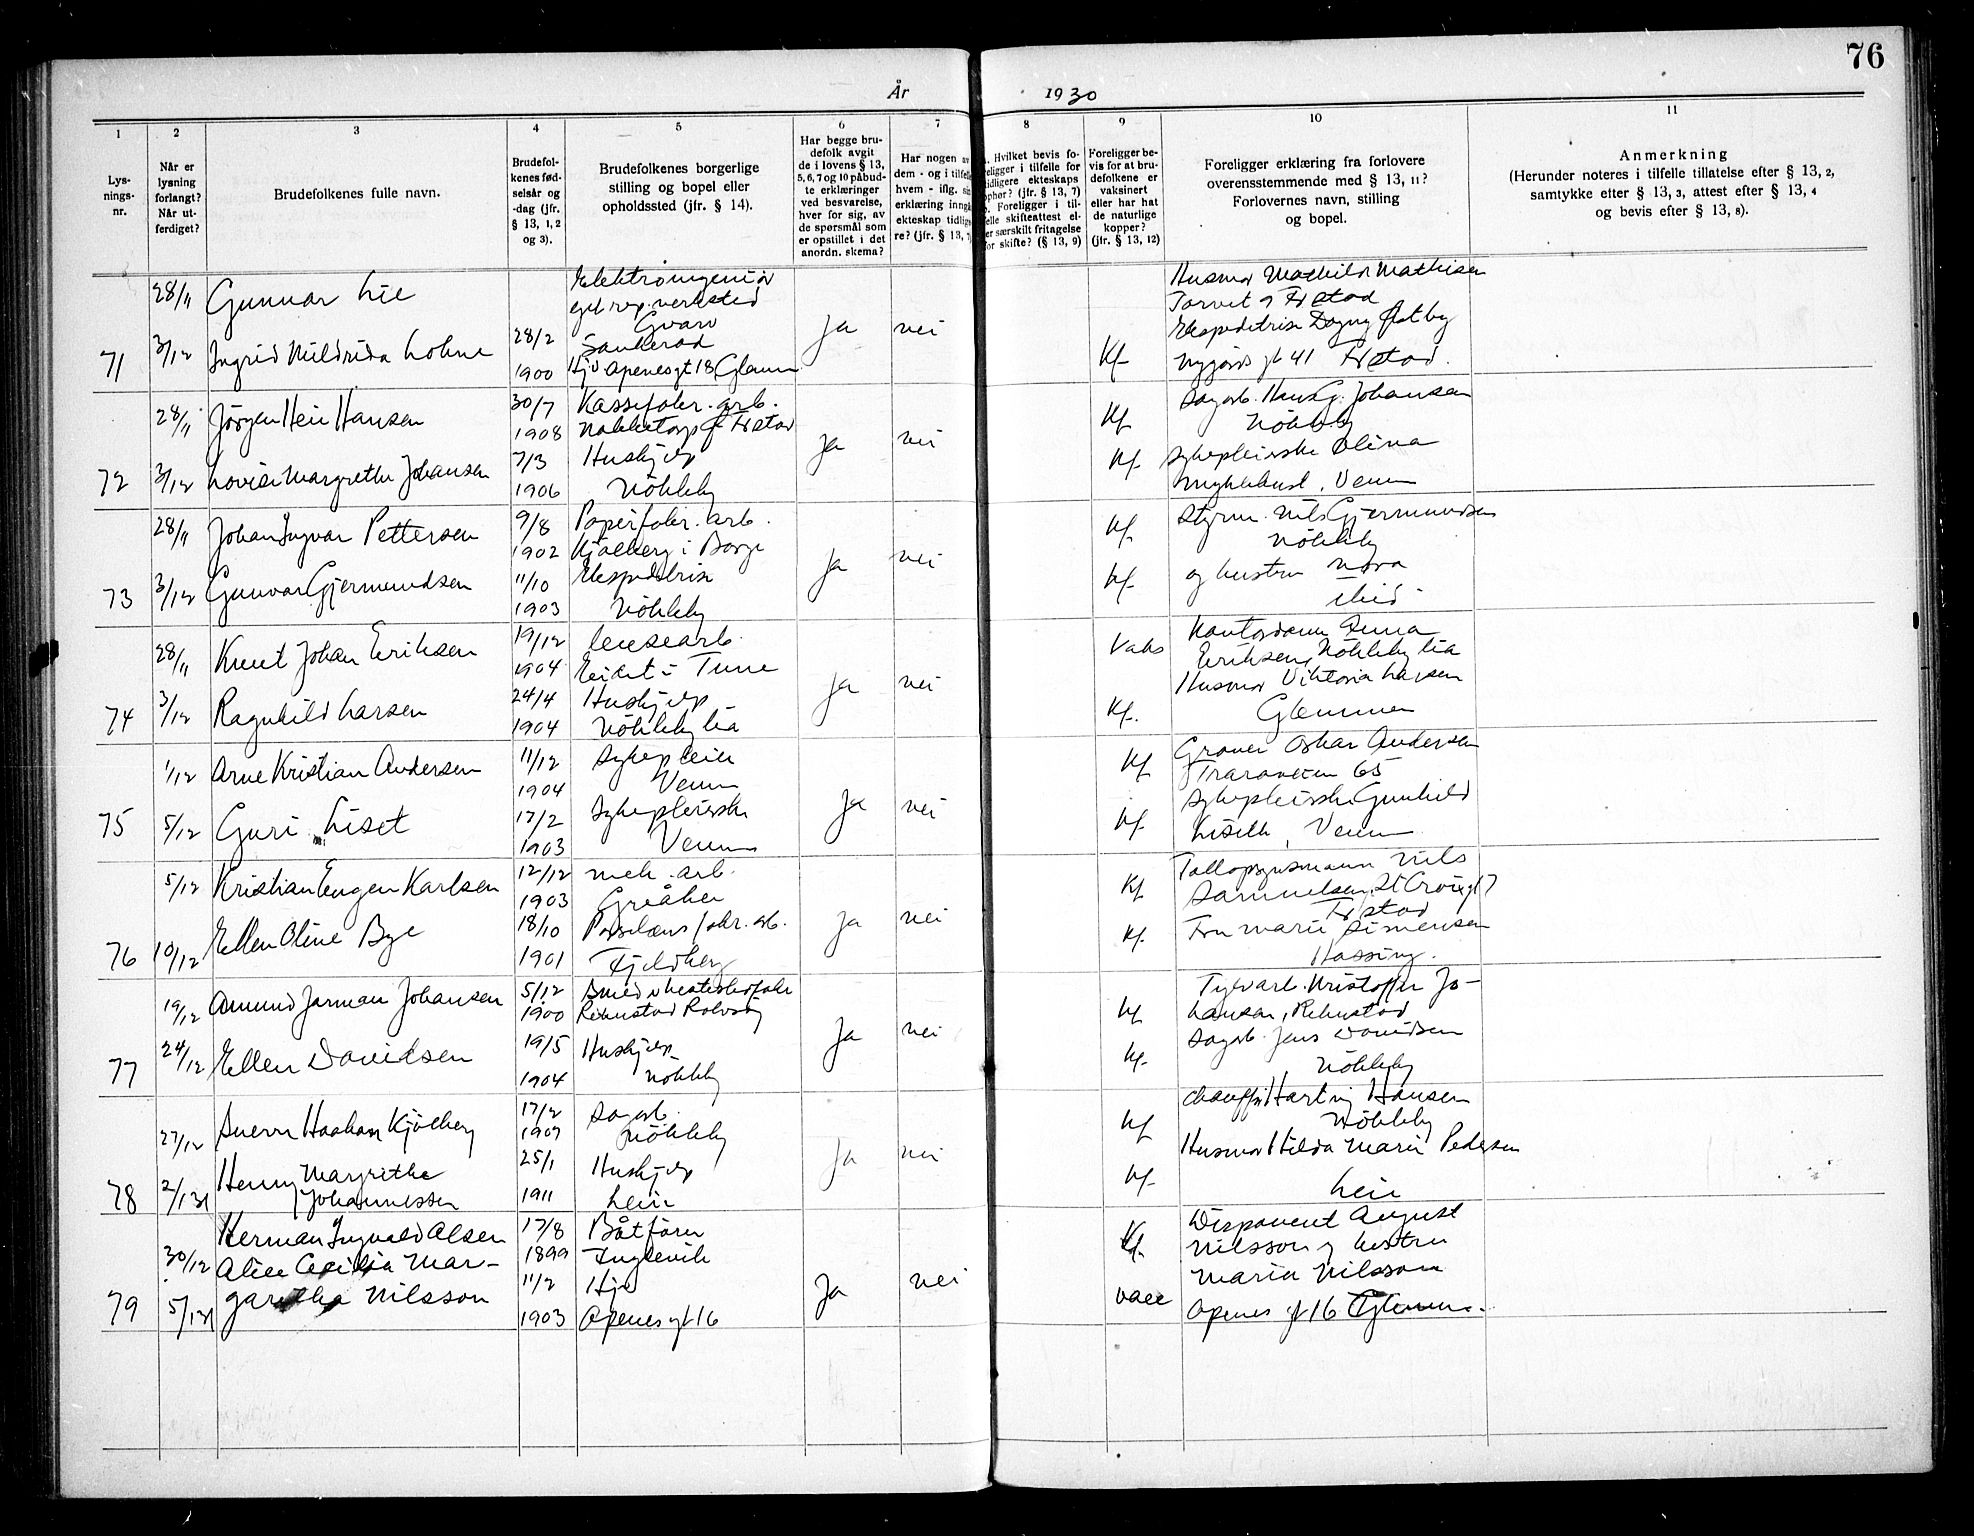 76
År 1930
1 2 3 4 5 6 7 8 9 10 11
Lys-
nings-
nr.
Når er
lysning
forlangt?
Når ut-
ferdiget?
Brudefolkenes fulle navn.
Brudefol-
kenes fød-
selsår og
-dag (jfr.
§ 13, 1, 2
og 3).
Brudefolkenes borgerlige
stilling og bopel eller
opholdssted (jfr. § 14).
Har begge bru-
defolk avgit
de i lovens § 13,
5, 6, 7 og 10 påbud-
te erklæringer
ved besvarelse,
hver for sig, av
de spørsmål som
er opstillet i det
anordn. skema?
Har nogen av
dem - og i tilfelle
hvem - iflg. si
erklæring inngå
ekteskap tidlig
re? (jfr. § 13,
Hvilket bevis fo-
religger i tilfelle for
tidligere ekteskaps
ophør? (jfr. § 13, 7)
Foreligger i til-
elle skifteattest el-
er særskilt fritagelse
or skifte? (§ 13, 9)
Foreligger be-
vis for at bru-
defolkene er
vaksinert
eller har hat
de naturlige
kopper?
(jfr. § 13, 12)
Foreligger erklæring fra forlovere
overensstemmende med § 13, 11?
Forlovernes navn, stilling
og bopel.
Anmerkning
(Herunder noteres i tilfelle tillatelse efter § 13, 2,
samtykke efter § 13, 3, attest efter § 13, 4
og bevis efter § 13, 8).
71
28/11
3/12
Gunnar Lie
Ingrid Mildrida Lohne
28/2
1900
Elektroingeniør
eget rep. verksted
Gvarv
Sauherad
Hj. v. Apenesgt 18 Glemm
Ja
nei
Kf
Husmor Mathilde Mathisen
Torvet 9 Frstad
Ekspeditrise Dagny Østby
Nygårds gt 41 Frstad.
72
28/11
3/12
Jørgen Hein Hansen
Lovise Margrethe Johansen
30/7
1908
7/3
1906
Kassefabr. arb.
Nabbetorp Frstad
Hushjelp
Nökleby
Ja
nei
Kf
Kf
Sagarb. Hans G. Johansen
Nökleby
Sykepleierske Olina
Myklebust, Veum
73
28/11
3/12
Johan Ingvar Pettersen
Gunvor Gjermundsen
9/8
1902
11/10
1903
Papirfabr. arb.
Kjölberg i Borge
Ekspeditrise
Nökleby
Ja
nei
Kf
Kf
Styrm. Nils Gjermundsen
Nökleby
og hustru Nora
ibid.
74
28/11
3/12
Knut Johan Eriksen
Ragnhild Larsen
19/12
1904
24/4
1904
lensearb.
Eidet i Tune
Hushjelp
Nökleby lia
Ja
nei
Vaks
Kf.
Kontordame Anna
Eriksen, Nökleby lia
Husmor Viktoria Larsen
Glemmen
75
1/12
5/12
Arne Kristian Andersen
Guri Liset
11/12
1904
17/2
1903
Sykepleier
Veum
Sykepleierske
Veum
Ja
nei
Kf
Kf
Graver Oskar Andersen
Traraveien 65
Sykepleierske Gunhild
Veum
76
5/12
10/12
Kristian Eugen Karlsen
Ellen Oline Bye
12/12
1903
18/10
1901
mek. arb.
Greåker
Porselensfabr. arb.
Fjeldberg
Ja
nei
Kf
Kf
Tollopsynsmann Nils
Samuelsen, St Croix gt 7
Frstad
Fru Marie Simensen
Hassing.
77
19/12
24/12
Amund Jarman Johansen
Ellen Davidsen
5/12
1900
19/5
1904
Smed v hesteskofabr
Rekustad Rolvsöy
Hushjelp
Nökleby
Ja
nei
Kf
Kf
Kristoffer Jo-
hansen, Rekustad
Sagarb. Jens Davidsen
Nökleby
78
27/12
2/1 31
Sverre Haakon Kjölberg
Henny Margrethe
Johannessen
17/2
1907
25/1
1911
Sagarb.
Nökleby
Hushjelp
Leie
Ja
nei
Kf
Kf
Chauffør Hartvig Hansen
Nökleby
Husmor Hilda Marie Pedersen
Leie
79
30/12
5/1 31
Herman Ingvald Olsen
Alice Cecilia Mar-
garetha Nilsson
17/8
1899
11/2
1903
Båtfører
Inglevik
Hj.
Apenes gt 16
Ja
nei
Kf.
vacc
Disponent August
Nilsson og hustru
Maria Nilsson
Apenes gt 16 Glemm.